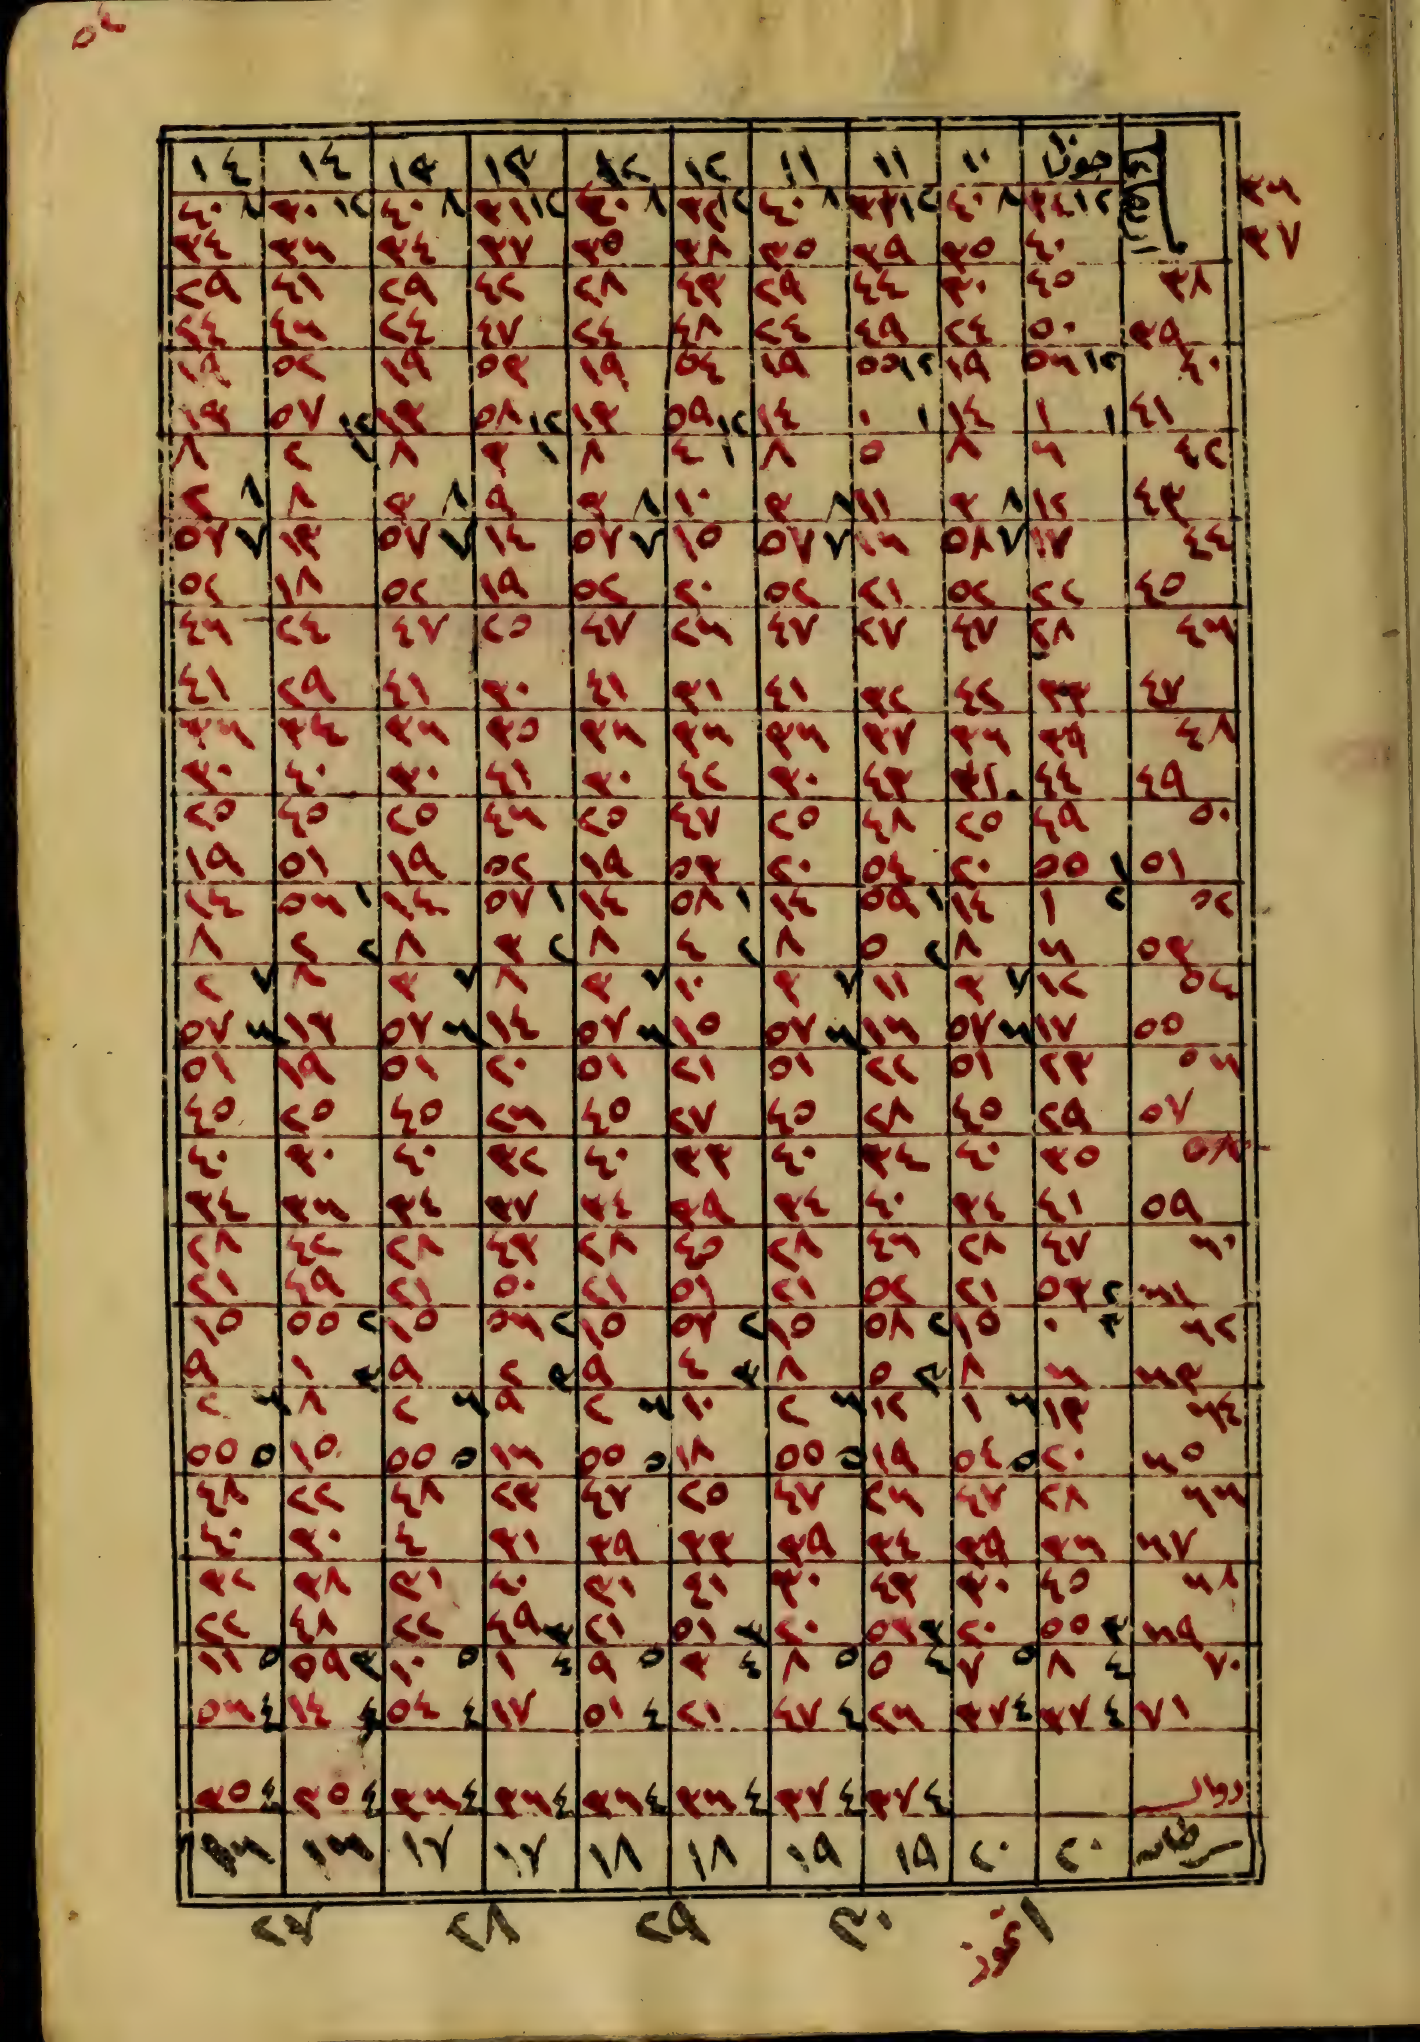 ٥٤
١٠ ١٠ ١١ ١١ ١٢ ١٢ ١٣ ١٣ ١٤ ١٤
٣٦ ١٢ ٣٤ ٨ ٤٠ ١٢ ٣٣ ٨ ٤٠ ١٢ ٣٢ ٨ ٤٠ ١٢ ٣١ ٨ ٤٠ ١٢ ٣٠ ٨ ٤٠
٣٧ ٤٠ ٣٥ ٣٩ ٣٥ ٣٨ ٣٥ ٣٧ ٣٤ ٣٦ ٣٤
٣٨ ٤٥ ٣٠ ٤٤ ٢٩ ٤٣ ٢٨ ٤٢ ٢٩ ٤١ ٢٩
٣٩ ٥٠ ٢٤ ٤٩ ٢٤ ٤٨ ٢٤ ٤٧ ٢٤ ٤٦ ٢٤
٤٠ ١٢ ٥٦ ١٩ ١٢ ٥٥ ١٩ ٥٤ ١٩ ٥٣ ١٩ ٥٢ ١٩
٤١ ١ ١ ١٤ ١ ٠ ١٤ ١٢ ٥٩ ١٣ ١٢ ٥٨ ١٣ ١٢ ٥٧ ١٣
٤٢ ٦ ٨ ٥ ٨ ١ ٤ ٨ ١ ٣ ٨ ١ ٢ ٨
٤٣ ١٢ ٨ ٣ ١١ ٨ ٣ ١٠ ٨ ٣ ٩ ٨ ٣ ٨ ٨ ٢
٤٤ ١٧ ٧ ٥٨ ١٦ ٧ ٥٧ ١٥ ٧ ٥٧ ١٤ ٧ ٥٧ ١٣ ٧ ٥٧
٤٥ ٢٢ ٥٢ ٢١ ٥٢ ٢٠ ٥٢ ١٩ ٥٢ ١٨ ٥٢
٤٦ ٢٨ ٤٧ ٢٧ ٤٧ ٢٦ ٤٧ ٢٥ ٤٧ ٢٤ ٤٦
٤٧ ٣٣ ٤٢ ٣٢ ٤١ ٣١ ٤١ ٣٠ ٤١ ٢٩ ٤١
٤٨ ٣٩ ٣٦ ٣٧ ٣٦ ٣٦ ٣٦ ٣٥ ٣٦ ٣٤ ٣٦
٤٩ ٤٤ ٣١ ٤٣ ٣٠ ٤٢ ٣٠ ٤١ ٣٠ ٤٠ ٣٠
٥٠ ٤٩ ٢٥ ٤٨ ٢٥ ٤٧ ٢٥ ٤٦ ٢٥ ٤٥ ٢٥
٥١ ١ ٥٥ ٢٠ ٥٤ ٢٠ ٥٣ ١٩ ٥٢ ١٩ ٥١ ١٩
٥٢ ٢ ١ ١٤ ١ ٥٩ ١٤ ١ ٥٨ ١٤ ١ ٥٧ ١٤ ١ ٥٦ ١٤
٥٣ ٦ ٨ ٢ ٥ ٨ ٢ ٤ ٨ ٢ ٣ ٨ ٢ ٢ ٨
٥٤ ١٢ ٧ ٣ ١١ ٧ ٣ ١٠ ٧ ٣ ٨ ٧ ٣ ٨ ٧ ٢
٥٥ ١٧ ٦ ٥٧ ١٦ ٦ ٥٧ ١٥ ٦ ٥٧ ١٤ ٦ ٥٧ ١٣ ٦ ٥٧
٥٦ ٢٣ ٥١ ٢٢ ٥١ ٢١ ٥١ ٢٠ ٥١ ١٩ ٥١
٥٧ ٢٩ ٤٥ ٢٨ ٤٥ ٢٧ ٤٥ ٢٦ ٤٥ ٢٥ ٤٥
٥٨ ٣٥ ٤٠ ٣٤ ٤٠ ٣٣ ٤٠ ٣٢ ٤٠ ٣٠ ٤٠
٥٩ ٤١ ٣٤ ٤٠ ٣٤ ٣٩ ٣٤ ٣٧ ٣٤ ٣٦ ٣٤
٦٠ ٤٧ ٢٨ ٤٦ ٢٨ ٤٥ ٢٨ ٤٣ ٢٨ ٤٢ ٢٨
٦١ ٢ ٥٣ ٢١ ٥٢ ٢١ ٥١ ٢١ ٥٠ ٢١ ٤٩ ٢١
٦٢ ٣ ٠ ١٥ ٢ ٥٨ ١٥ ٢ ٥٧ ١٥ ٢ ٥٦ ١٥ ٢ ٥٥ ١٥
٦٣ ٦ ٨ ٣ ٥ ٨ ٣ ٤ ٩ ٣ ٢ ٩ ٣ ١ ٩
٦٤ ١٣ ٦ ١ ١٢ ٦ ٢ ١٠ ٦ ٢ ٩ ٦ ٢ ٨ ٦ ٢
٦٥ ٢٠ ٥ ٥٤ ١٩ ٥ ٥٥ ١٨ ٥ ٥٥ ١٦ ٥ ٥٥ ١٥ ٥ ٥٥
٦٦ ٢٨ ٤٧ ٢٦ ٤٧ ٢٥ ٤٧ ٢٣ ٤٨ ٢٢ ٤٨
٦٧ ٣٦ ٣٩ ٣٤ ٣٩ ٣٣ ٣٩ ٣١ ٤ ٣٠ ٤٠
٦٨ ٤٥ ٣٠ ٤٣ ٣٠ ٤١ ٣١ ٤٠ ٣١ ٣٨ ٣٢
٦٩ ٣ ٥٥ ٢٠ ٣ ٥٣ ٢٠ ٣ ٥١ ٢١ ٣ ٤٩ ٢٢ ٤٨ ٢٢
٧٠ ٤ ٨ ٥ ٧ ٤ ٥ ٥ ٨ ٤ ٣ ٥ ٩ ٤ ١ ٥ ١٠ ٣ ٥٩ ٥ ١١
٧١ ٤ ٣٧ ٤ ٣٧ ٢٦ ٤ ٤٧ ٢١ ٤ ٥١ ١٧ ٤ ٥٤ ٤ ١٤ ٤ ٥٦
٤ ٣٧ ٤ ٣٧ ٤ ٣٦ ٤ ٣٦ ٤ ٣٦ ٤ ٣٦ ٤ ٣٥ ٤ ٣٥
٢٠ ٢٠ ١٩ ١٩ ١٨ ١٨ ١٧ ١٧ ١٦ ١٦
١ تموز ٣٠ ٢٩ ٢٨ ٢٧